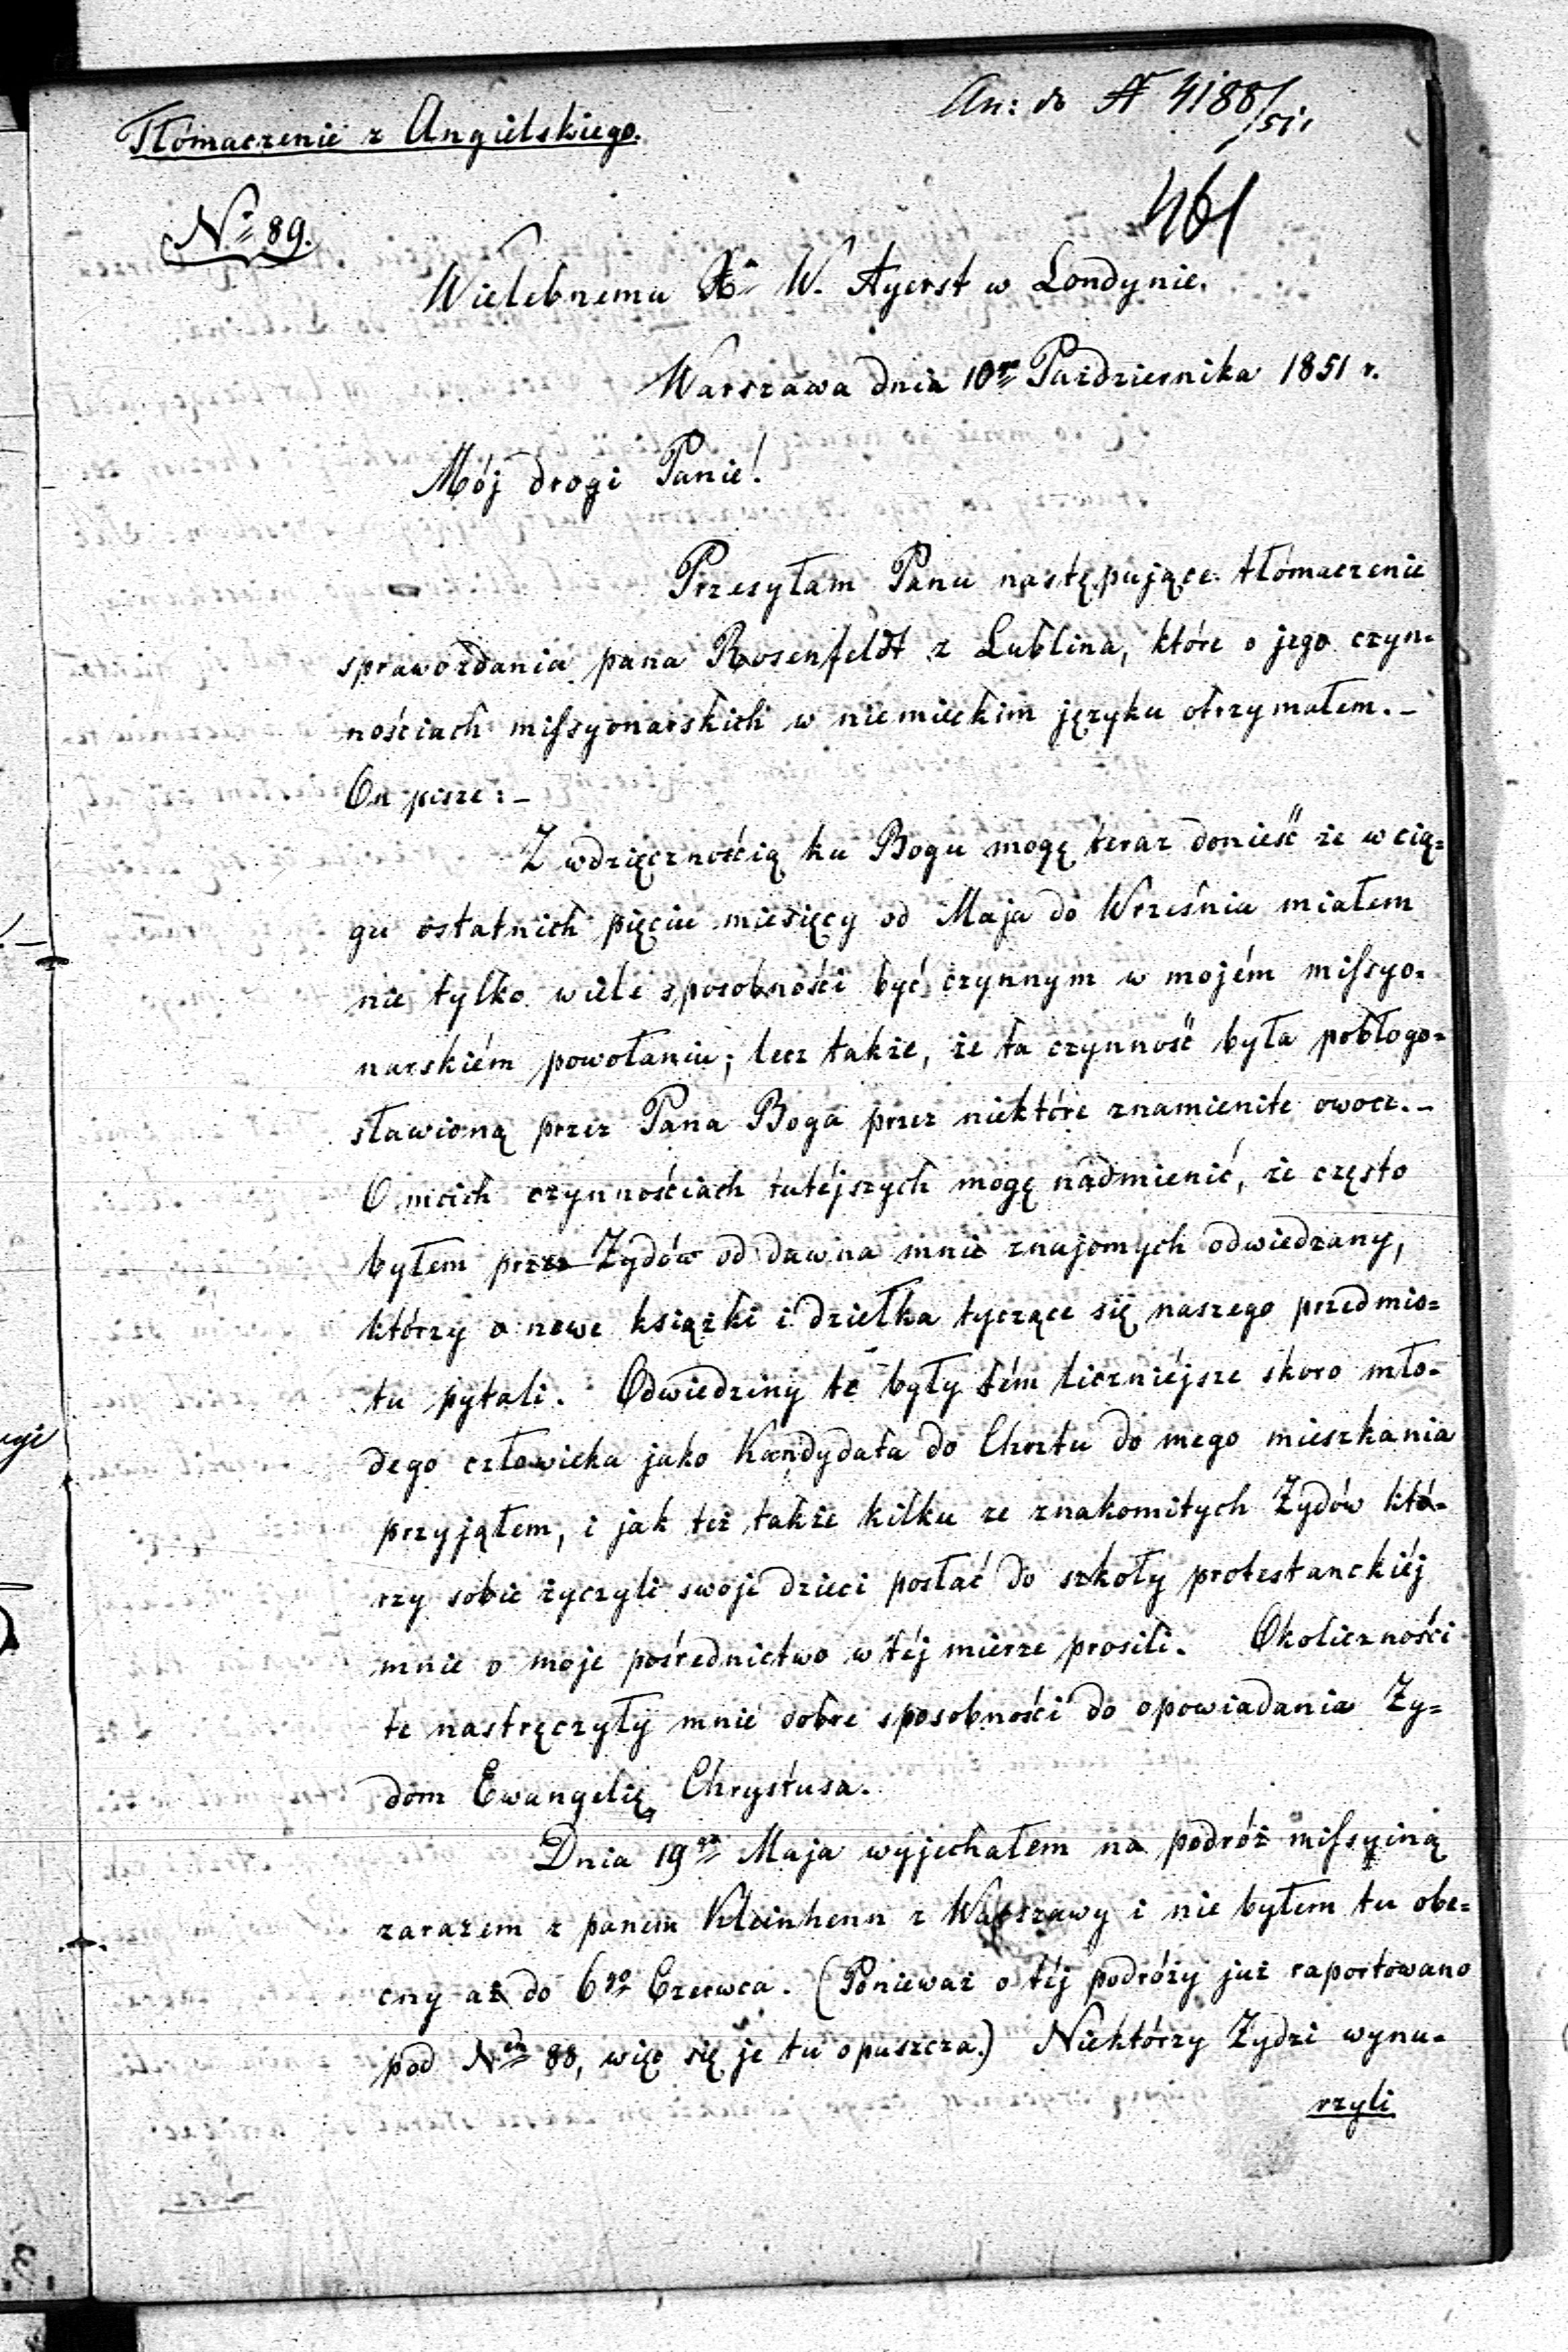 An: do N 4188/51.
Tłómaczenie z Angielskiego.
461
No 89.
Wielebnemu Xu W. Ayerst w Londynie.
Warszawa dnia 10go Października 1851 r.
Mój drogi Panie!
Przesyłam Panu następujące tłómaczenie
sprawozdania pana Rosenfeldt z Lublina, które o jego czyn=
nościach missyonarskich w niemieckim języku otrzymałem. –
On pisze: –
Z wdzięcznością ku Bogu mogę teraz donieść że w cią=
gu ostatnich pięciu miesięcy od Maja do Września miałem
nie tylko wiele sposobności być czynnym w mojém missyo=
narskiém powołaniu; lecz także, że ta czynność była pobłogo=
sławioną przez Pana Boga przez niektóre znamienite owoce. –
O moich czynnościach tutéjszych mogę nadmienić, że często
byłem przez Żydów od dawna mnie znajomych odwiedzany,
którzy o nowe książki i dziełka tyczące się naszego przedmio=
tu pytali. Odwiedziny te były tém liczniéjsze skoro mło=
dego człowieka jako Kandydata do Chrztu do mego mieszkania
przyjąłem, i jak też także kilku ze znakomitych Żydów któ=
rzy sobie życzyli swoje dzieci posłać do szkoły protestanckiéj
mnie o moje pośrednictwo w téj mierze prosili. Okoliczności
te nastręczyły mnie dobre sposobności do opowiadania Ży=
dom Ewangelię Chrystusa.
Dnia 19go Maja wyjechałem na podróż missyiną
zarazem z panem Kleinhenn z Warszawy i nie byłem tu obe=
cny aż do 6go Czerwca. (Ponieważ o téj podróży już raportowano
pod Nem 88, więc się je tu opuszcza.) Niektórzy Żydzi wynu=
rzyli